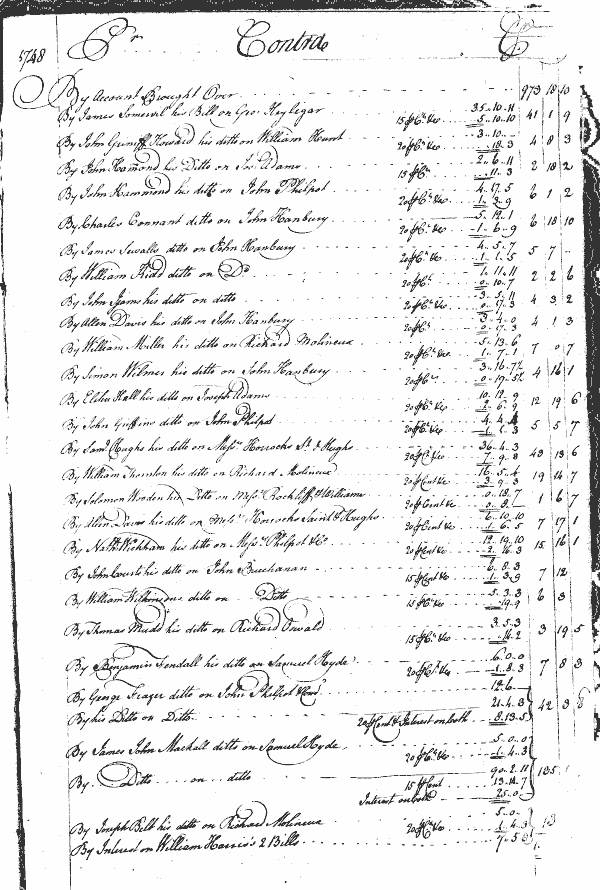 1748 Pr Contra Cr
By Account Brought Over 973 18 10
By James Somervel his Bill on Geo: Heyligar 15 ⅌ Ct. &co 35..10.11 5..10.10 41 1 9
By John Howard his ditto on William Hunt 20 ⅌ Ct. &co 3..10.. ..18.3 4 8 3
By John Hamond his Ditto on Jos. Adams 15 ⅌ Ct. 2..6..11 ..11.3 2 18 2
By John Hammond his ditto on John Philpot 20 ⅌ Ct. &co 4.17.5 1.3.9 6 1 2
By Charles Connant ditto on John Hanbury 20 ⅌ Ct. &co 5.12.1 1..6..9 6 18 10
By James Sewalls ditto on John Hanbury 20 ⅌ Ct. &co 4.5.7 1.1.5 5 7
By William Kidd ditto on Do 20 ⅌ Ct. 1.11.11 0.10.7 2 2 6
By John his ditto on ditto 20 ⅌ Ct. &co 3..5.11 0.17.3 4 3 2
By Allen Davis his ditto on John Hanbury 20 ⅌ Ct. 3.4.0 0.17.3 4 1 3
By William Miller his ditto on Richard Molineux 20 ⅌ Ct. &co 5.13.6 1.7.1 7 0 7
By Simon Wilmer his ditto on John Hanbury 20 ⅌ Ct. 3.16.7½ 0.19.5½ 4 16 1
By Elisha Hall his ditto on Joseph Adams 20 ⅌ Ct. &co 10.12.9 2.6.9 12 19 6
By John Griffin ditto on John Philpot 20 ⅌ Ct. &co 4.4.4 1.1.3 5 5 7
By Saml. Hughs his ditto on Messrs. Horrocks St. & Hughs 20 ⅌ Ct. &co 36.4.3 7.9.3 43 13 6
By William Thornton his ditto on Richard Molineux 20 ⅌ Cent &co 16.5.4 3.9.3 19 14 7
By Solomon Wooden his Ditto on Messrs. Rockliff, & Williams 20 ⅌ Cent &c 0.18.7 0.8 1 6 7
By Allen Davis his ditto on Messrs. Horrocks Saint & Hughs 20 ⅌ Cent &c 6.10.10 1.6.5 7 17 1
By Nath. Wickham his ditto on Messrs. Philpot & Co 20 ⅌ Cent &co 12.19.10 2.16.3 15 16 1
By John his ditto on John Buchanan 15 ⅌ Cent &c 6.8.3 1.3.9 7 12
By William Wilkinson ditto on Ditto 15 ⅌ Ct. &co 5.3.3 ..19.9 6 3
By Thomas Mudd his ditto on Richard Oswald 15 ⅌ Ct. &co 3.5.3 ..14.2 3 19 5
By Benjamin Fendall his ditto on Samuel Hyde 20 ⅌ Ct. &co 6.0.0 1.8.3 7 8 3
By George Frazer ditto on John Philpot & Co. 12.6
By his Ditto on Ditto 20 ⅌ Cent & Interest on both 21.4.3 8.13.5 42 3 8
By James John Mackall ditto on Samuel Hyde 20 ⅌ Ct. &co 5.0.0 1.4.3
By Ditto on ditto 15 ⅌ Cent 90.2.11 13.14.7 135
Interest on both 25.0
By Joseph Belt his ditto on Richard Molineux 20 ⅌ Ct. &co 5.0 1.4.3 13
By Interest on William Harris's 2 Bills 7.5.8 1